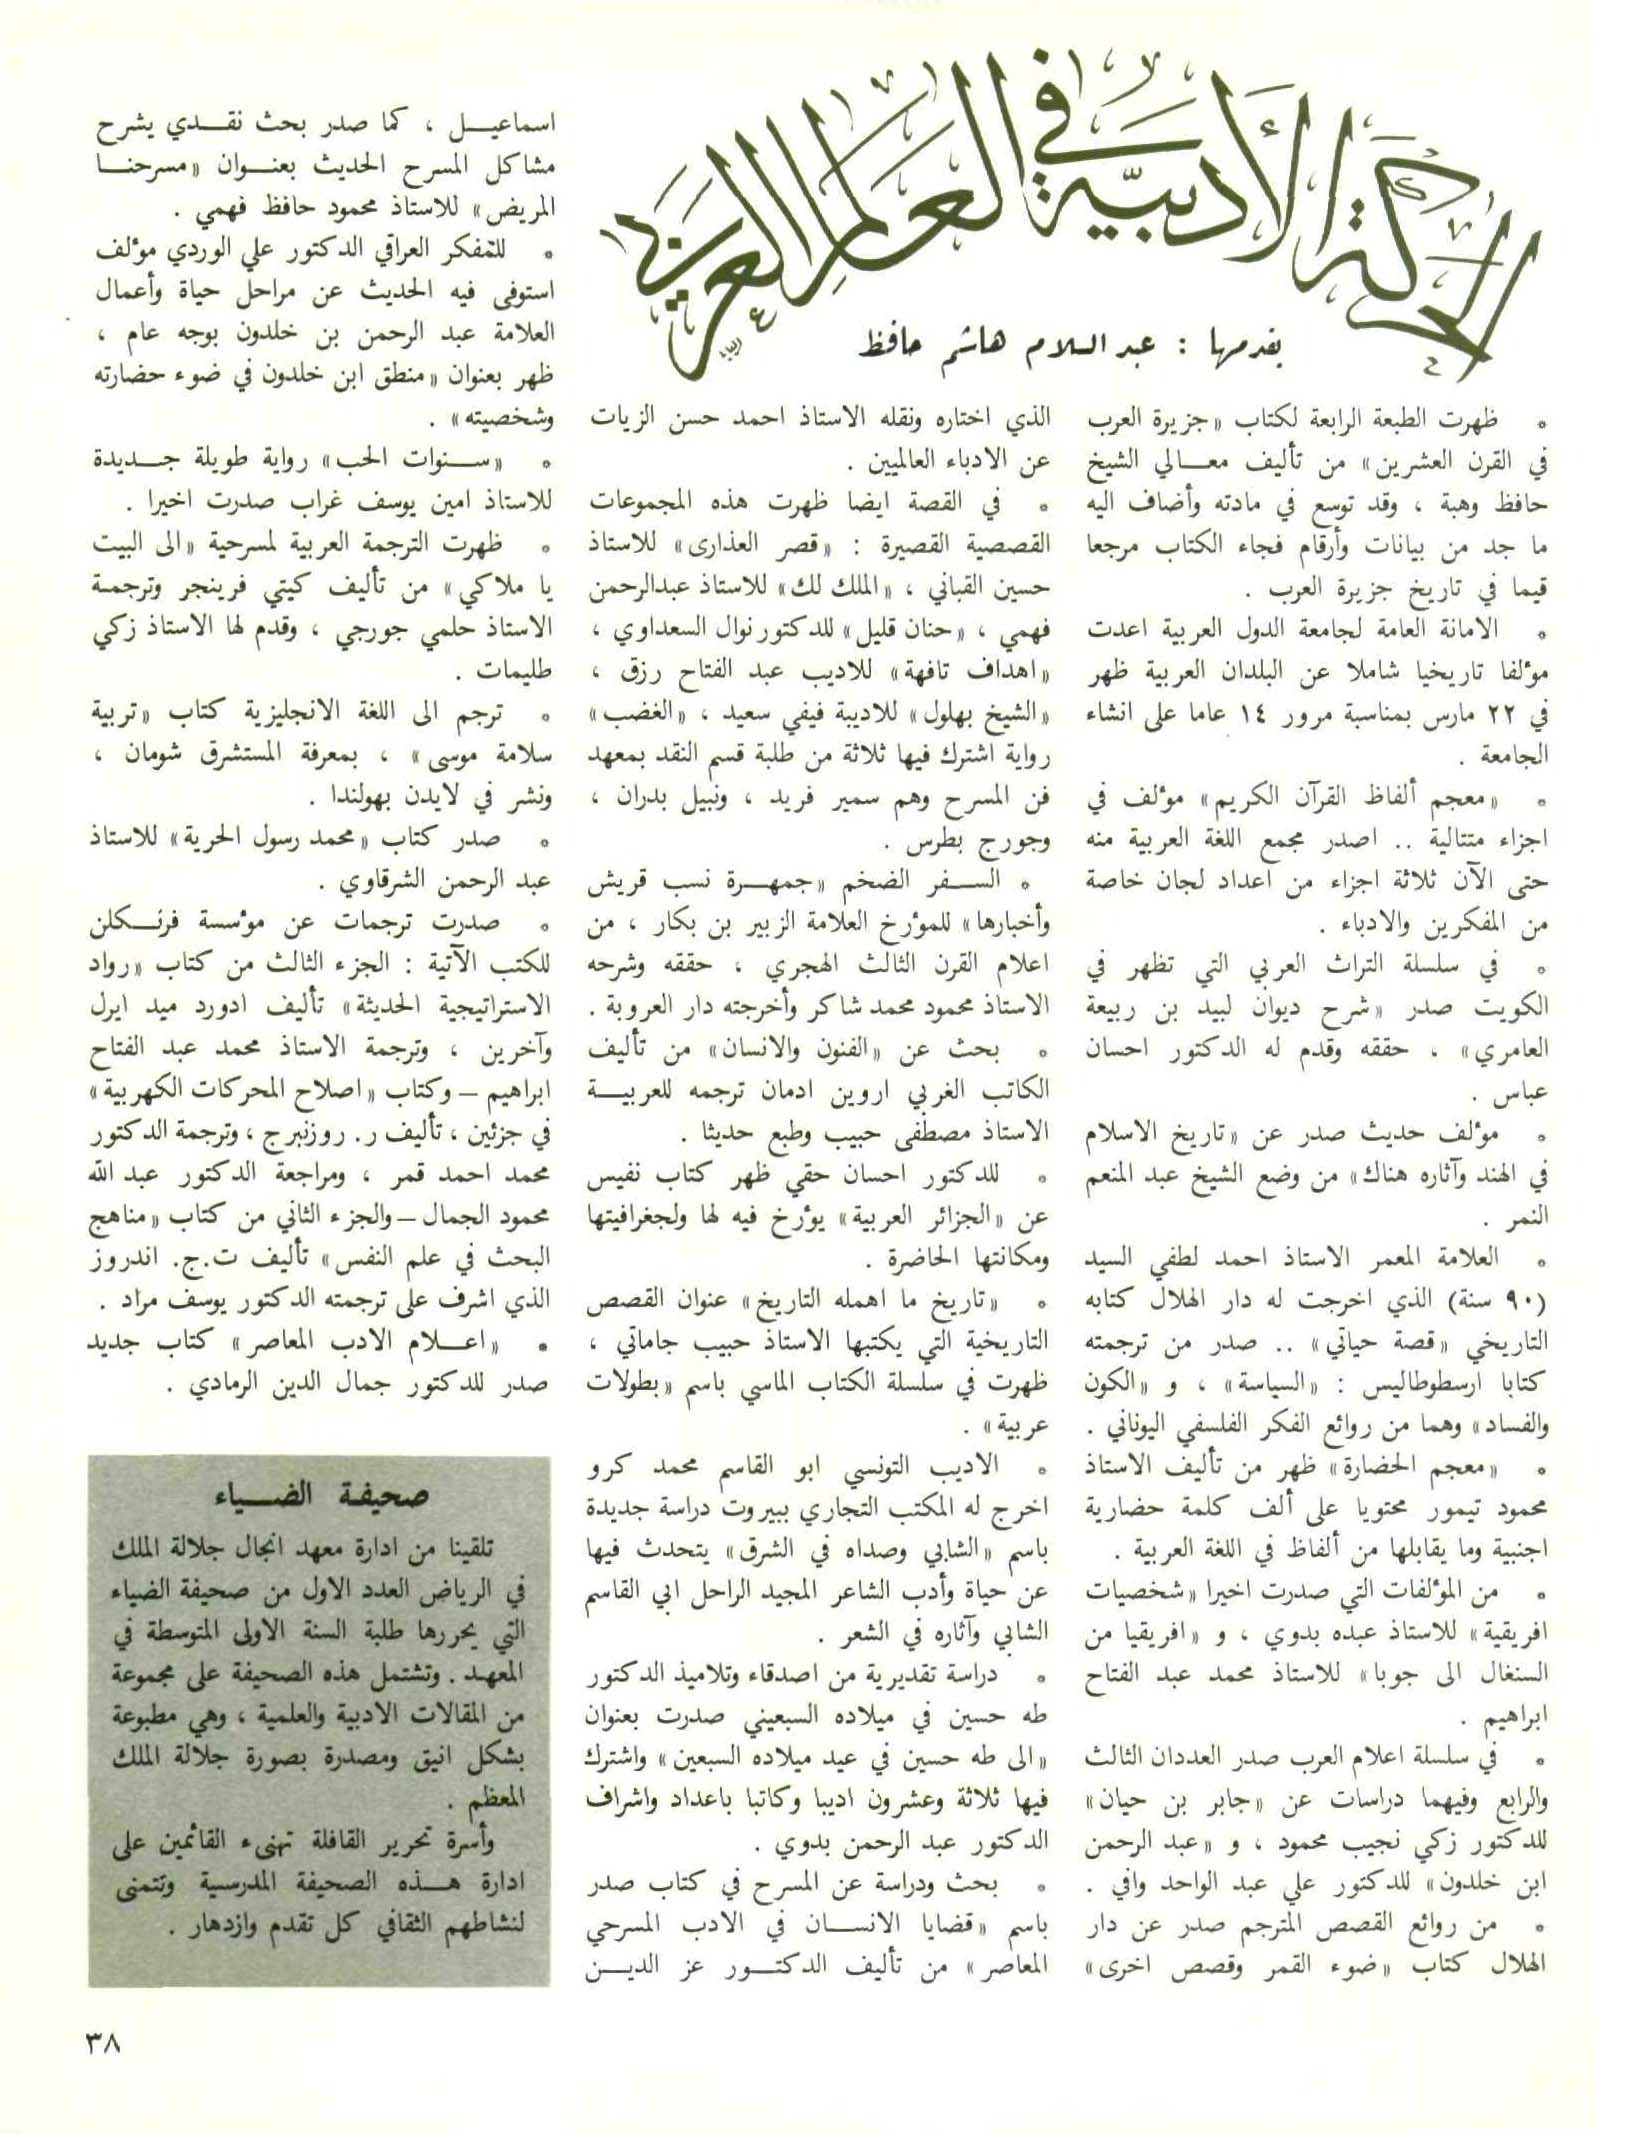 الحركة الأدبية في العالم العربي
يقدمها : عبد السلام هاشم حافظ
• ظهرت الطبعة الرابعة لكتاب «جزيرة العرب
في القرن العشرين» من تأليف معالي الشيخ
حافظ وهبة ، وقد توسع في مادته وأضاف اليه
ما جد من بيانات وأرقام فجاء الكتاب مرجعا
قيما في تاريخ جزيرة العرب .
• الامانة العامة لجامعة الدول العربية اعدت
مؤلفا تاريخيا شاملا عن البلدان العربية ظهر
في ٢٢ مارس بمناسبة مرور ١٤ عاما على انشاء
الجامعة .
• «معجم ألفاظ القرآن الكريم» مؤلف في
اجزاء متتالية .. اصدر مجمع اللغة العربية منه
حتى الآن ثلاثة اجزاء من اعداد لجان خاصة
من المفكرين والادباء .
• في سلسلة التراث العربي التي تظهر في
الكويت صدر «شرح ديوان لبيد بن ربيعة
العامري» ، حققه وقدم له الدكتور احسان
عباس .
• مؤلف حديث صدر عن «تاريخ الاسلام
في الهند وآثاره هناك» من وضع الشيخ عبد المنعم
النمر .
• العلامة المعمر الاستاذ احمد لطفي السيد
(٩٠ سنة) الذي اخرجت له دار الهلال كتابه
التاريخي «قصة حياتي» .. صدر من ترجمته
كتابا ارسطوطاليس : «السياسة» ، و «الكون
والفساد» وهما من روائع الفكر الفلسفي اليوناني .
• «معجم الحضارة» ظهر من تأليف الاستاذ
محمود تيمور محتويا على ألف كلمة حضارية
اجنبية وما يقابلها من ألفاظ في اللغة العربية .
• من المؤلفات التي صدرت اخيرا «شخصيات
افريقية» للاستاذ عبده بدوي ، و «افريقيا من
السنغال الى جوبا» للاستاذ محمد عبد الفتاح
ابراهيم .
• في سلسلة اعلام العرب صدر العددان الثالث
والرابع وفيهما دراسات عن «جابر بن حيان»
للدكتور زكي نجيب محمود ، و «عبد الرحمن
ابن خلدون» للدكتور علي عبد الواحد وافي .
• من روائع القصص المترجم صدر عن دار
الهلال كتاب «ضوء القمر وقصص اخرى»
الذي اختاره ونقله الاستاذ احمد حسن الزيات
عن الادباء العالميين .
• في القصة ايضا ظهرت هذه المجموعات
القصصية القصيرة : «قصر العذارى» للاستاذ
حسين القباني ، «الملك لك» للاستاذ عبدالرحمن
فهمي ، «حنان قليل» للدكتور نوال السعداوي ،
«اهداف تافهة» للاديب عبد الفتاح رزق ،
«الشيخ بهلول» للاديبة فيفي سعيد ، «الغضب»
رواية اشترك فيها ثلاثة من طلبة قسم النقد بمعهد
فن المسرح وهم سمير فريد ، ونبيل بدران ،
وجورج بطرس .
• السفر الضخم «جمهرة نسب قريش
وأخبارها» للمؤرخ العلامة الزبير بن بكار ، من
اعلام القرن الثالث الهجري ، حققه وشرحه
الاستاذ محمود محمد شاكر وأخرجته دار العروبة .
• بحث عن «الفنون والانسان» من تأليف
الكاتب الغربي اروين ادمان ترجمه للعربية
الاستاذ مصطفى حبيب وطبع حديثا .
• للدكتور احسان حقي ظهر كتاب نفيس
عن «الجزائر العربية» يؤرخ فيه لها ولجغرافيتها
ومكانتها الحاضرة .
• «تاريخ ما اهمله التاريخ» عنوان القصص
التاريخية التي يكتبها الاستاذ حبيب جاماتي ،
ظهرت في سلسلة الكتاب الماسي باسم «بطولات
عربية» .
• الاديب التونسي ابو القاسم محمد كرو
اخرج له المكتب التجاري ببيروت دراسة جديدة
باسم «الشابي وصداه في الشرق» يتحدث فيها
عن حياة وأدب الشاعر المجيد الراحل ابي القاسم
الشابي وآثاره في الشعر .
• دراسة تقديرية من اصدقاء وتلاميذ الدكتور
طه حسين في ميلاده السبعيني صدرت بعنوان
«الى طه حسين في عيد ميلاده السبعين» واشترك
فيها ثلاثة وعشرون اديبا وكاتبا باعداد واشراف
الدكتور عبد الرحمن بدوي .
• بحث ودراسة عن المسرح في كتاب صدر
باسم «قضايا الانسان في الادب المسرحي
المعاصر» من تأليف الدكتور عز الدين
اسماعيل ، كما صدر بحث نقدي يشرح
مشاكل المسرح الحديث بعنوان «مسرحنا
المريض» للاستاذ محمود حافظ فهمي .
• للمفكر العراقي الدكتور علي الوردي مؤلف
استوفى فيه الحديث عن مراحل حياة وأعمال
العلامة عبد الرحمن بن خلدون بوجه عام ،
ظهر بعنوان «منطق ابن خلدون في ضوء حضارته
وشخصيته» .
• «سنوات الحب» رواية طويلة جديدة
للاستاذ امين يوسف غراب صدرت اخيرا .
• ظهرت الترجمة العربية لمسرحية «الى البيت
يا ملاكي» من تأليف كيتي فرينجر وترجمة
الاستاذ حلمي جورجي ، وقدم لها الاستاذ زكي
طليمات .
• ترجم الى اللغة الانجليزية كتاب «تربية
سلامة موسى» ، بمعرفة المستشرق شومان ،
ونشر في لايدن بهولندا .
• صدر كتاب «محمد رسول الحرية» للاستاذ
عبد الرحمن الشرقاوي .
• صدرت ترجمات عن مؤسسة فرنكلن
للكتب الآتية : الجزء الثالث من كتاب «رواد
الاستراتيجية الحديثة» تأليف ادورد ميد ايرل
وآخرين ، وترجمة الاستاذ محمد عبد الفتاح
ابراهيم – وكتاب «اصلاح المحركات الكهربية»
في جزئين ، تأليف ر. روزنبرج ، وترجمة الدكتور
محمد احمد قمر ، ومراجعة الدكتور عبد الله
محمود الجمال – والجزء الثاني من كتاب «مناهج
البحث في علم النفس» تأليف ت.ج. اندروز
الذي اشرف على ترجمته الدكتور يوسف مراد .
• «اعلام الادب المعاصر» كتاب جديد
صدر للدكتور جمال الدين الرمادي .
صحيفة الضياء
تلقينا من ادارة معهد انجال جلالة الملك
في الرياض العدد الاول من صحيفة الضياء
التي يحررها طلبة السنة الاولى المتوسطة في
المعهد . وتشتمل هذه الصحيفة على مجموعة
من المقالات الادبية والعلمية ، وهي مطبوعة
بشكل انيق ومصدرة بصورة جلالة الملك
المعظم .
وأسرة تحرير القافلة تهنىء القائمين على
ادارة هذه الصحيفة المدرسية وتتمنى
لنشاطهم الثقافي كل تقدم وازدهار .
٣٨